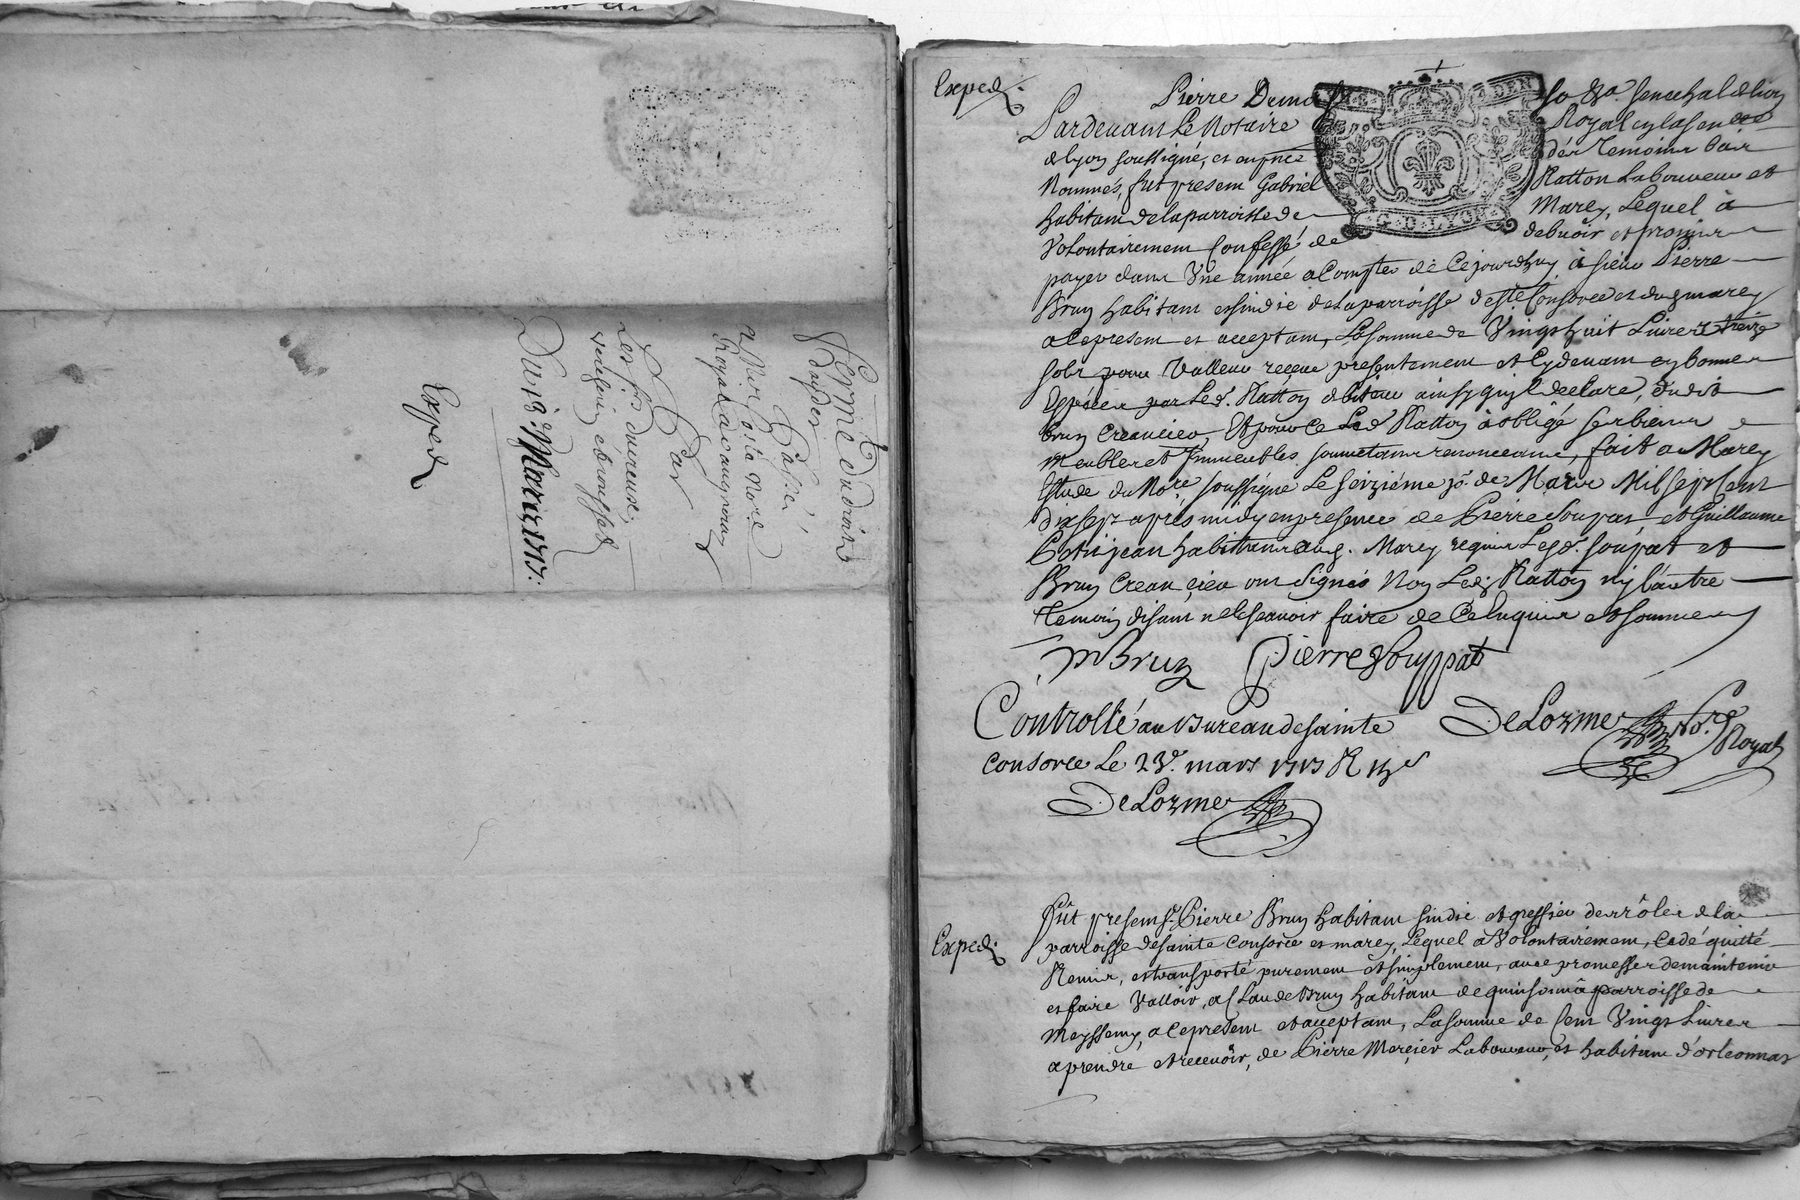 Ferme du droit
Passé
Par
Du 13e Mars 1717.
Exped
Exped.
Pierre
Pardevant Le Notaire Royal
de lyon soussigné, et en pnce des Temoins bas
Nommés, fut present Gabriel Ratton Laboureur et
habitant de la parroisse de Marcy, Lequel à
Volontairement Confessé de debvoir et promis
payer dans Une année a Compter de Cejourdhuy à sieur Pierre
Bruy habitant et sindic de la parroisse de ste Consorce et dud marcy
a Ce present et acceptant, La somme de Vingt huit Livres treize
sols pour Valleur receue presentement et Cydevant en bonnes
Especes par Led. Ratton debiteur ainsy quil declare, dudit
bruy Creancier, Et pour Ce Led Ratton à obligé ses biens
meubles et Immeubles soumetant renonceant, fait a Marcy
Estude du Nore soussigné Le seizième jo. de Mars Mil sept Cent
dix sept apres midy en presence de Pierre Soupat et Guillaume
habitants aud. Marcy requis Lesd. soupat et
Bruy Creancier ont signés Non Led. Ratton ny l'autre
temoin disant ne le scavoir faire de Ce enquis et sommés
P Bruy Pierre Souppat
Controllé au Bureau de sainte
Consorce Le 23e. mars 1717 R
DeLorme Nore
Royal
DeLorme
Exped.
Fut present sr. Pierre Bruy habitant sindic et greffier des rôles de la
parroisse de sainte Consorce et marcy, Lequel à Volontairement, Cedé quitté
Remis, et transporté purement et simplement, avec promesses de maintenir
et faire Valloir, a Claude Bruy habitant de parroisse de
Meyssemy, a Ce present et acceptant, La somme de Cent Vingt Livres
a prendre et recevoir, de Pierre Mercier Laboureur, et habitant d'orleonnas